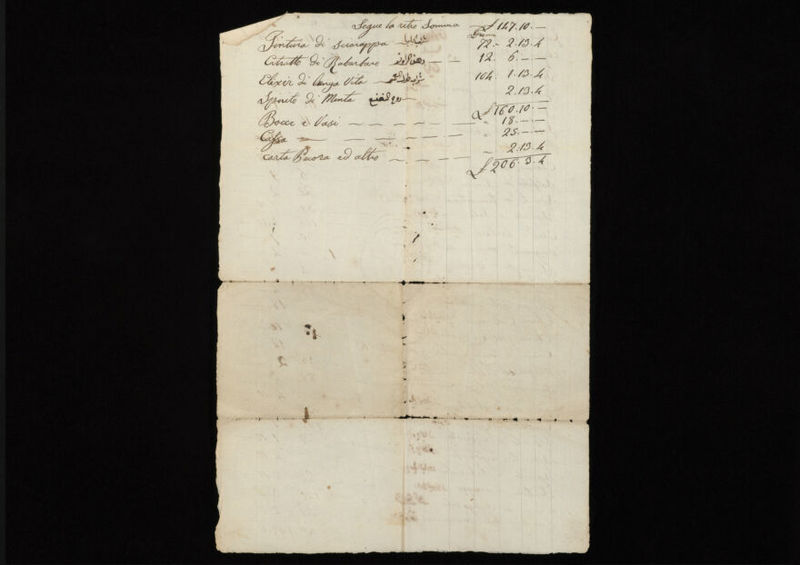 Segue la retro Somma — £ 147. 10. —
Tintura di sciarappa 72. — 2. 13. 4
Estratto di Rabarbaro — — 12. 6. — —
Elexir di lunga Vita 104. 1. 13. 4
Spirito di Menta روح النعنع — 2. 13. 4
£ 160. 10. —
Bocce e Vasi — — — — — — " 18. — —
— — — — — — " 25. — —
Carta Buona ed altro — — — — " 2. 13. 4
£ 206. 3. 4